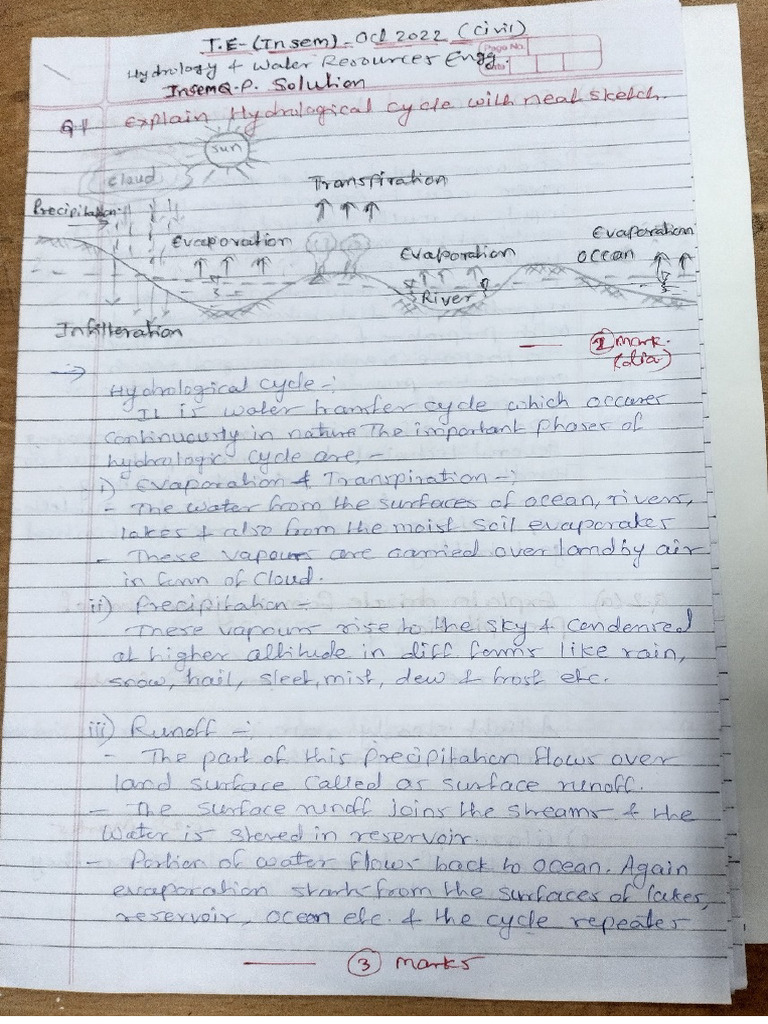 T.E-(Insem)-Oct 2022 (Civil)
Hydrology & Water Resources Engg.
Page No.
Date
Insem Q.P. Solution
Q1 Explain Hydrological cycle with neat sketch.
Sun
Cloud
Transpiration
Precipitation
Evaporation
Evaporation
Evaporation
ocean
River
Infilteration
mark.
(dia)
Hydrological cycle -:
It is water transfer cycle which occures
continuousty in nature The important phases of
hydrologic cycle are, -
i) Evaporation & Transpiration -:
- The water from the surfaces of ocean, rivers,
lakes & also from the moist soil evaporates
- These vapours are carried over land by air
in form of cloud.
ii) Precipitation -
These vapours rise to the sky & condensed
at higher altitude in diff forms like rain,
snow, hail, sleet, mist, dew & frost etc.
iii) Runoff -:
- The part of this precipitation flows over
land surface called as surface runoff.
- The surface runoff joins the streams & the
water is stored in reservoir.
- Portion of water flows back to ocean. Again
evaporation starts from the surfaces of lakes,
reservoir, ocean etc. & the cycle repeates
3 marks